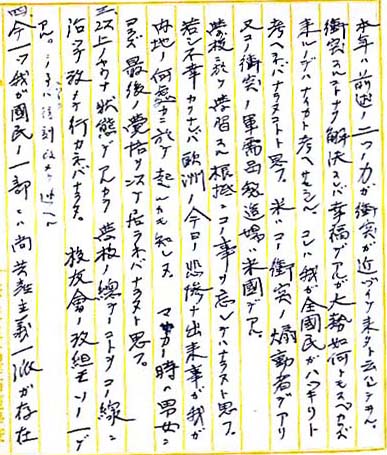 本年ハ前述ノ二ツノ力ガ衝突ガ近ヅイテ来タト云フベキデ
衝突スルコトナク解決スレバ幸福デアルガ大勢如何トモスベカラズ
来ルノデハナイカト考ヘサセラレル コレハ我ガ全国民ガハッキリト
考ヘネバナラヌコトト思フ。米ハコノ衝突ノ煽動者デアリ
又コノ衝突ノ軍需品製造場ハ米国デアル。
学校ニ於ケル学習ノ根抵ニコノ事ヲ忘レテハナラヌト思フ。
若シ不幸カナレバ欧洲ノ今日ノ悲惨ナ出来事ガ我ガ
内地ノ何処ニ於テ起ルカモ知レヌ。マサカノ時ハ男女ニ
ヨラズ最後ノ覚悟ヲシテ居ラネバナラヌト思フ。
三、以上ノヤウナ状態デアルカラ学校ノ總テノコトヲコノ線ニ
沿フテ改メテ行カネバナラヌ。校友会ノ改組モソノ一デ
アル。
四、今一ツ我ガ國民ノ一部ニハ尚共産主義一派ガ存在